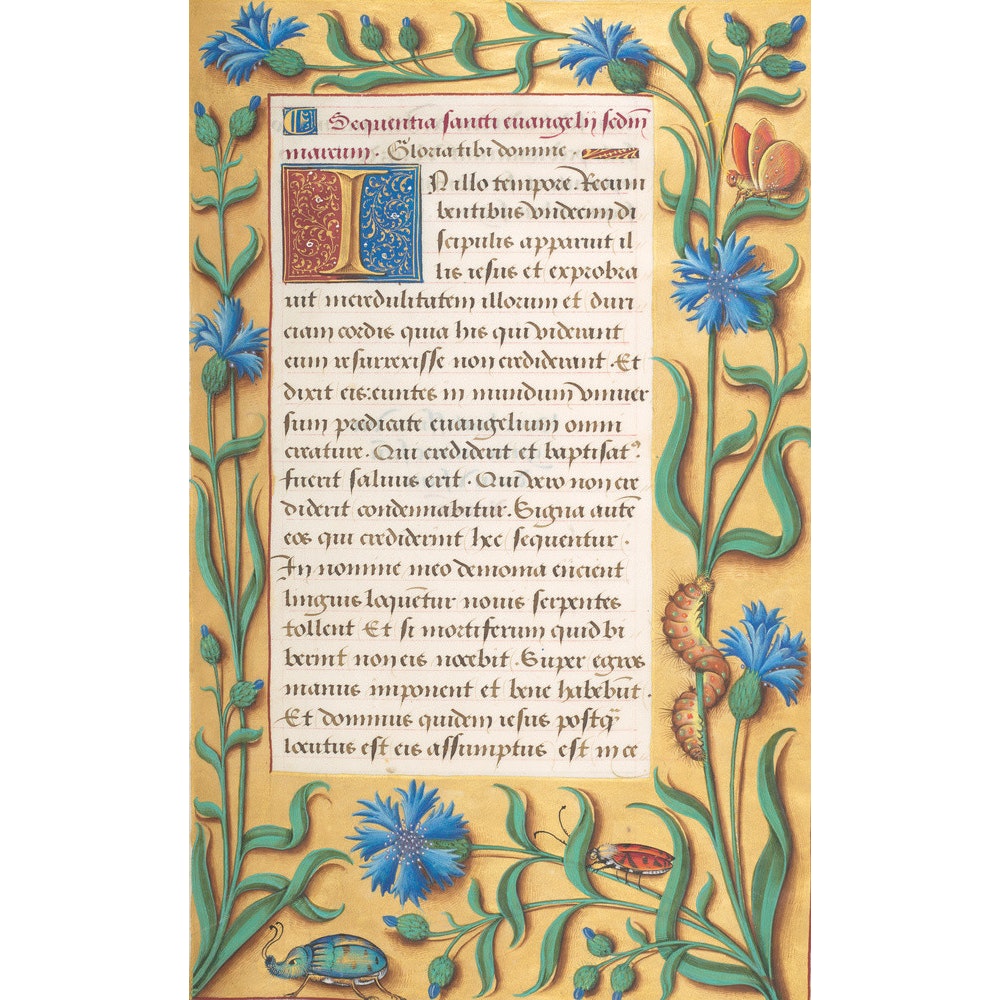 Sequentia sancti euangelij sedm̄
marcum. Gloria tibi domine.
IN illo tempore. Recum
bentibus vndecim di
scipulis apparuit il
lis iesus et exprobra
uit incredulitatem illorum et duri
ciam cordis quia his qui viderant
eum resurrexisse non crediderant. Et
dixit eis: euntes in mundum vniuer
sum predicate euangelium omni
creature. Qui crediderit et baptisatꝰ
fuerit saluus erit. Qui vero non cre
diderit condennabitur. Signa autē
eos qui crediderint hec sequentur.
In nomine meo demonia eiicient
linguis loquētur nouis serpentes
tollent Et si mortiferum quid bi
berint non eis nocebit. Super egros
manus imponent et bene habebūt.
Et dominus quidem iesus postq̄
locutus est eis assumptus est in ce